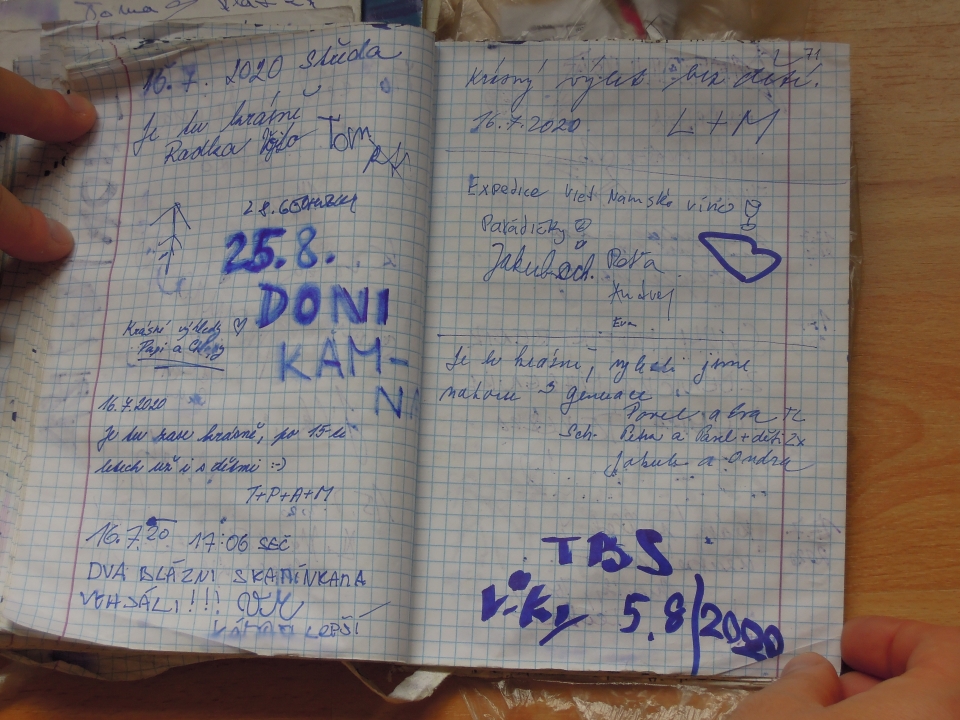 16.7. 2020 Středa
Je tu krásně
Radka Tom
25.8.
DONI
KAM-
Krásné výhledy ♡
Papi a
16.7.2020
Je tu zase krásně, po 15-ti
letech už i s dětmi :-)
T+P+A+M
16.7.20 17:06 SEČ
DVA BLÁZNI S KAMÍNKAMA
!!!
LEPŠÍ
71
Krásný výlet bez dětí.
16.7.2020 L+M
Expedice Viet Namské
Parádičky
Jakub
Andrej
Eva
Je to krásné, vylezli jsme
nahoru 3 generace
Pavel a
Petra a Pavel + děti 2x
Jakub a Ondra
TBS
Viky 5.8/2020